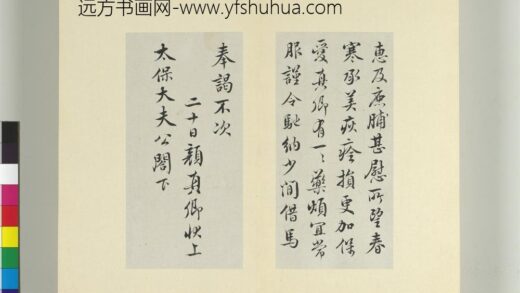 远方书画网-www.yfshuhua.com
惠及鹿脯甚慰所望春
寒承美疾痊損更加保
愛真卿有一二藥煩宜常
服謹令馳納少間借馬
奉謁不次
二十日顏真卿狀上
太保大夫公閣下